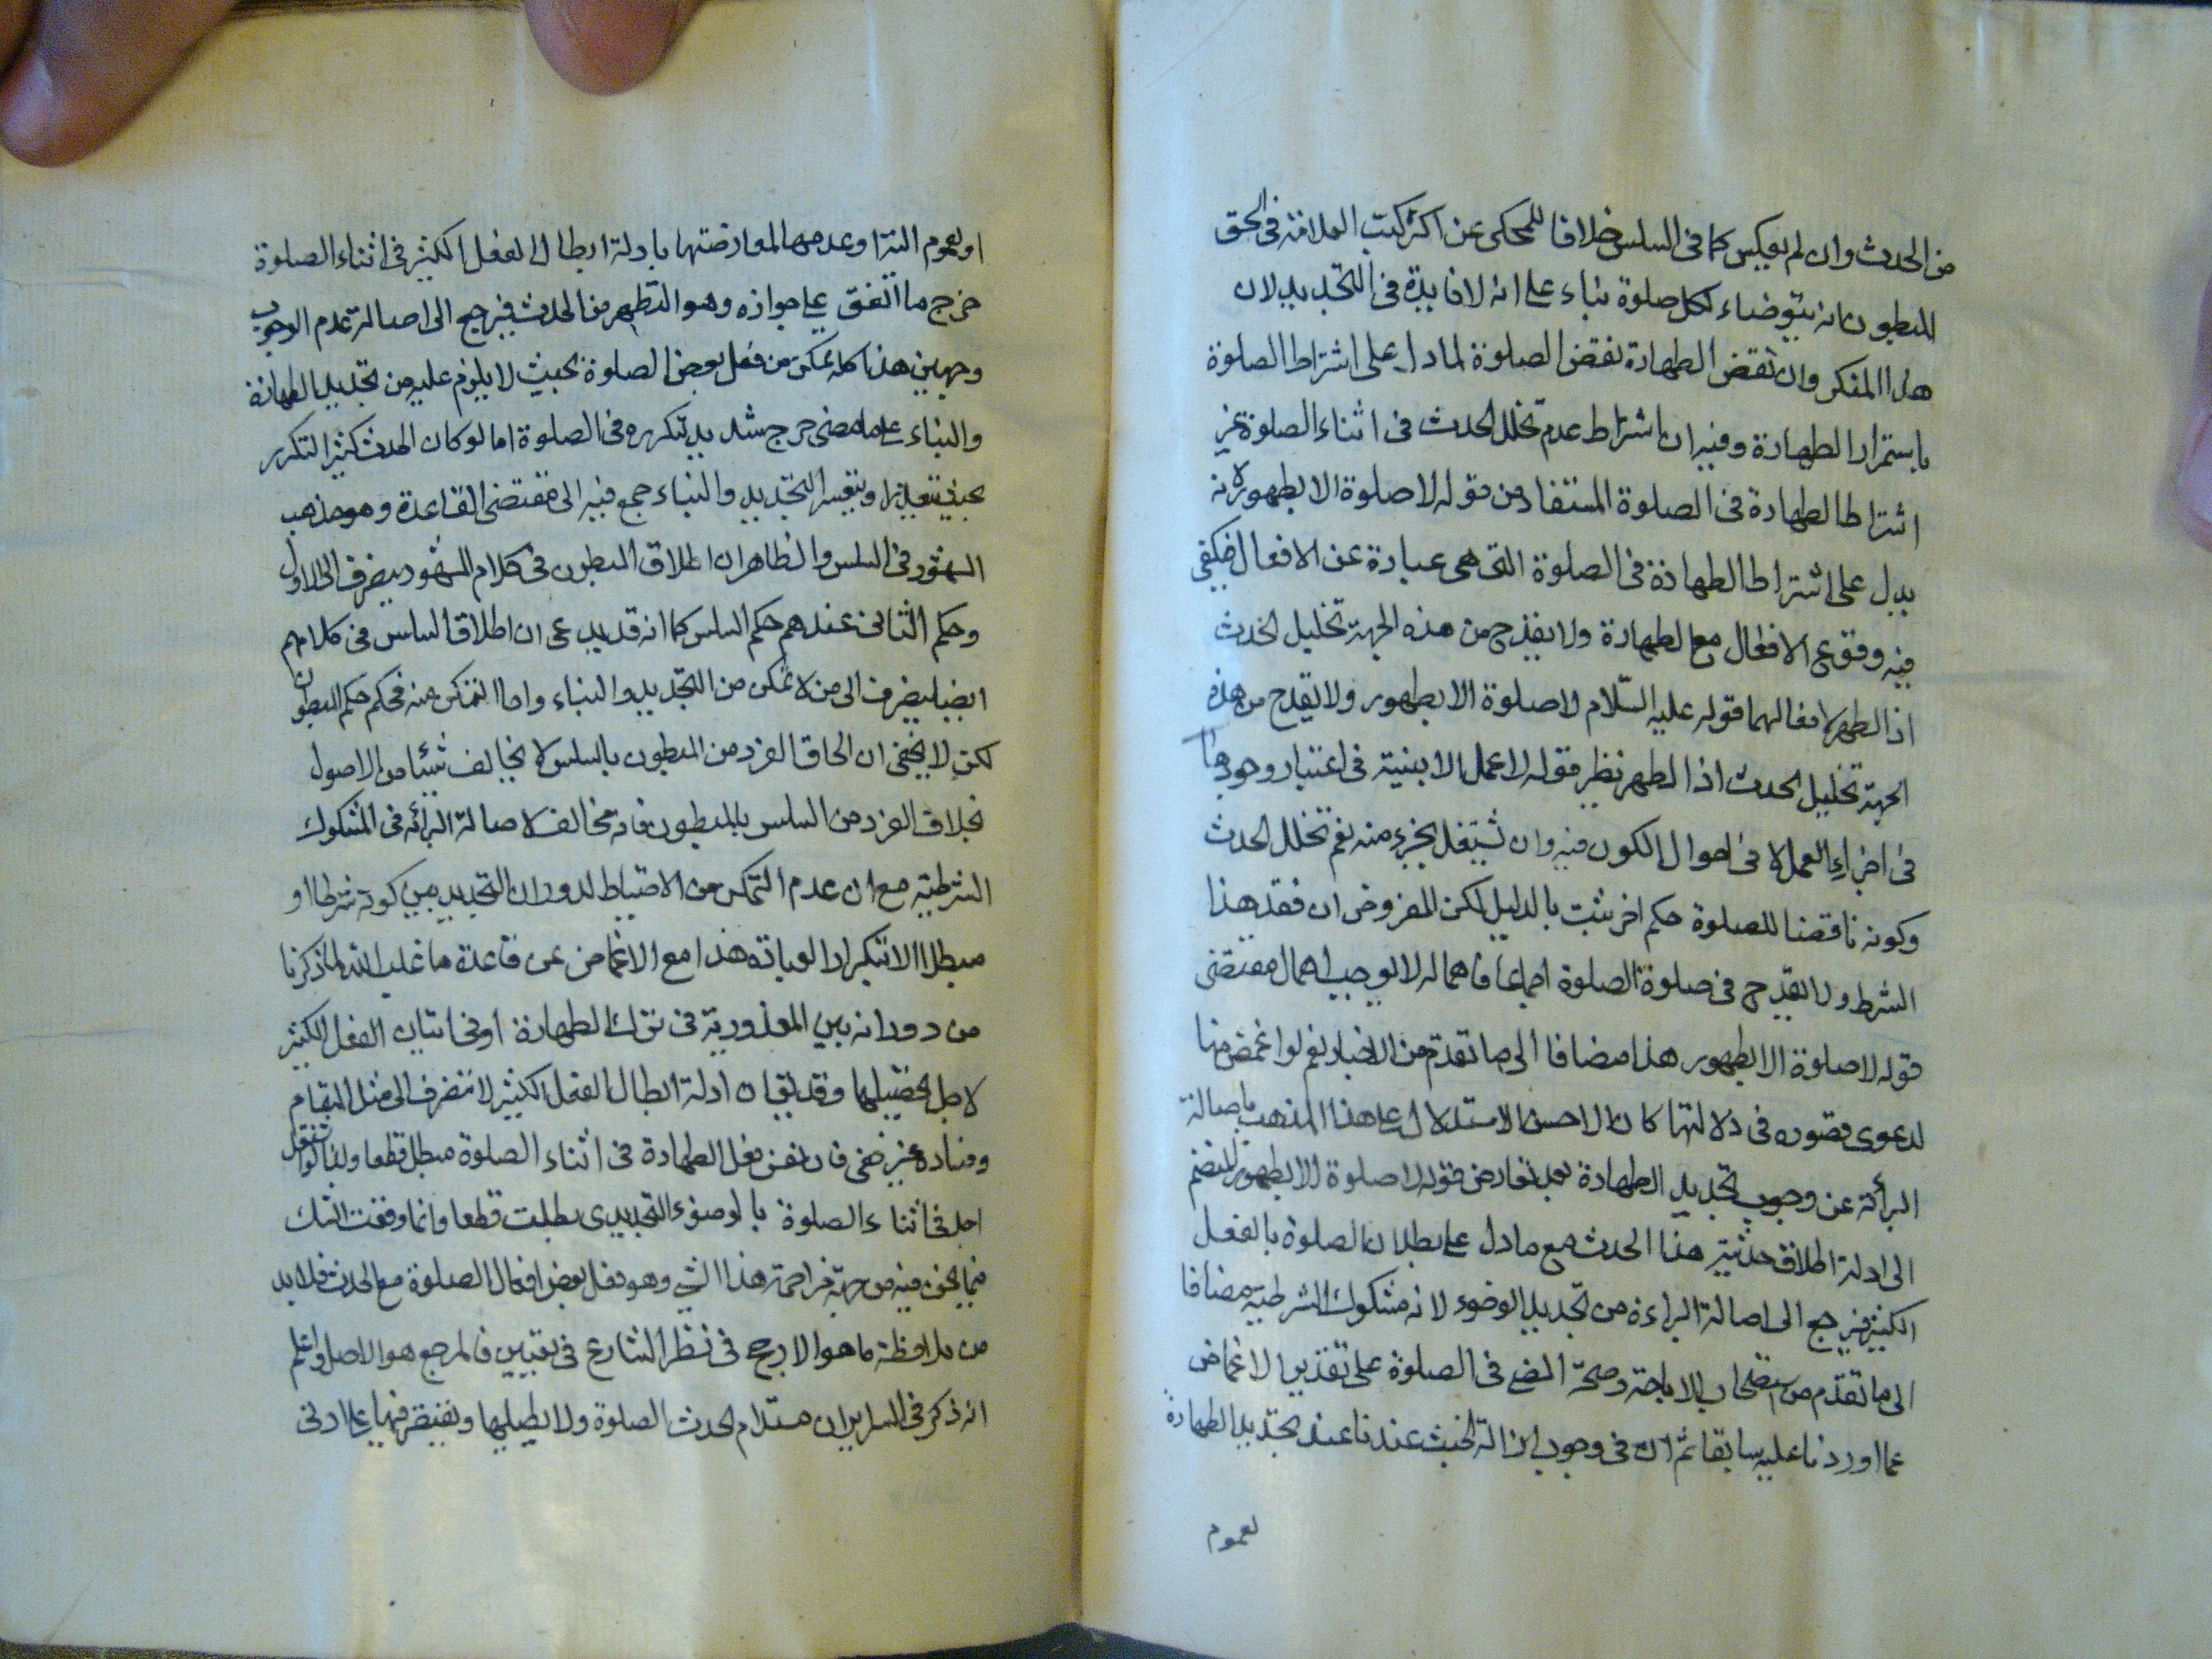 من الحدث وان لم يعكس كما فى السلس خلافا للمحكى عن اكثر كتب العلامة فالحق
المبطون بانه يتوضاء لكل صلوة بناء على انه لا فايدة فى التجديد لان
هذا المتكرر وان نقض الطهارة نقض الصلوة لما دل على اشتراط الصلوة
باستمرار الطهارة وفيه ان اشتراط عدم تخلل الحدث فى اثناء الصلوة غير
اشتراط الطهارة فى الصلوة المستفاد من قوله لا صلوة الا بطهور لانه
يدل على اشتراط الطهارة فى الصلوة التى هى عبارة عن الافعال فيكفى
فيه وقوع الافعال مع الطهارة ولا يقدح من هذه الجهة تخليل الحدث
اذا تطهر لافعالهما قوله عليه السّلام لا صلوة الا بطهور ولا يقدح من هذه
الجهة تخليل الحدث اذا تطهر نظير قوله لا عمل الا بنية فى اعتبار وجودها
فى اجزاء العمل لا فى احوال الكون فيه وان لم يشتغل بجزء منه نعم تخلل الحدث
وكونه ناقضا للصلوة حكم اخر يثبت بالدليل لكن المفروض ان فقد هذا
الشرط ولا يقدح فى صلوة الصلوة اجماعا فاهماله لا يوجب اهمال مقتضى
قوله لا صلوة الا بطهور هذا مضافا الى ما تقدم من الاخبار نعم لو اغمض عنها
لدعوى قصوره فى دلالتها كان الاحسن الاستدلال على هذا المذهب باصالة
البرائة عن وجوب تجديد الطهارة بعد تعارض قوله لا صلوة الا بطهور المنضم
الى ادلة اطلاق حدثية هذا الحدث مع ما دل على بطلان الصلوة بالفعل
الكثير فيرجع الى اصالة البراءة من تجديد الوضوء لانه مشكوك الشرطية مضافا
الى ما تقدم من استصحاب الاباحة وصحة المضى فى الصلوة على تقدير الاغماض
عما اوردنا عليه سابقا ثم ان فى وجوب ازالة الخبث عندنا عند تجديد الطهارة
لعموم
او لعموم وعدمها لمعارضتها بادلة ابطال الفعل الكثير فى اثناء الصلوة
خرج ما اتفق على جوازه وهو التطهر من الحدث فيرجع الى اصالة عدم الوجوب
وجهين هذا كله يمكن من فعل بعض الصلوة بحيث لا يلزم عليه من تجديد الطهارة
والبناء على ما مضى حرج شديد بتكرره فى الصلوة اما لو كان الحدث كثير التكرر
بحيث يتعذر او يتعسر التجديد والبناء رجع فيه الى مقتضى القاعدة وهو مذهب
المشهور فى السلس والظاهر ان اطلاق المبطون فى كلام المشهور ينصرف الى الاول
وحكم الثانى عندهم حكم السلس كما انه قد يدعى ان اطلاق السلس فى كلامهم
ايضا ينصرف الى من لا يتمكن من التجديد والبناء واما المتمكن منه فحكمه حكم المبطون
لكن لا يخفى ان الحاق الفرد من المبطون بالسلس لا يخالف شيئا من الاصول
بخلاف الفرد من السلس بالمبطون فانه مخالف لاصالة البرائة فى المشكوك
الشرطية مع ان عدم التمكن من الاحتياط لدوران التجديد بين كونه شرطا او
مبطلا الا بتكرار العبادة هذا مع الاغماض عن قاعدة ما غلب الله لما ذكرنا
من دورانه بين المعذورية فى ترك الطهارة او فى اتيان الفعل الكثير
لاجل تحصيلها وقد يقال ان ادلة ابطال الفعل الكثير لا تنصرف الى مثل المقام
وفساده غير خفى فان نفس فعل الطهارة فى اثناء الصلوة مبطل قطعا ولذا لو اشتغل
احد فى اثناء الصلوة بالوضوء التجديدى بطلت قطعا وانما وقعت الشك
فيما نحن فيه من جهة مزاحمة هذا الشئ وهو فعل بعض افعال الصلوة مع الحدث فلا بد
من ملاحظة ما هو الارجح فى نظر الشارع فى تعيين فالمرجع هو الاصل واعلم
انه ذكر فى السراير ان مستدام الحدث الصلوة ولا يطيلها ويقتصر فيها على ادنى